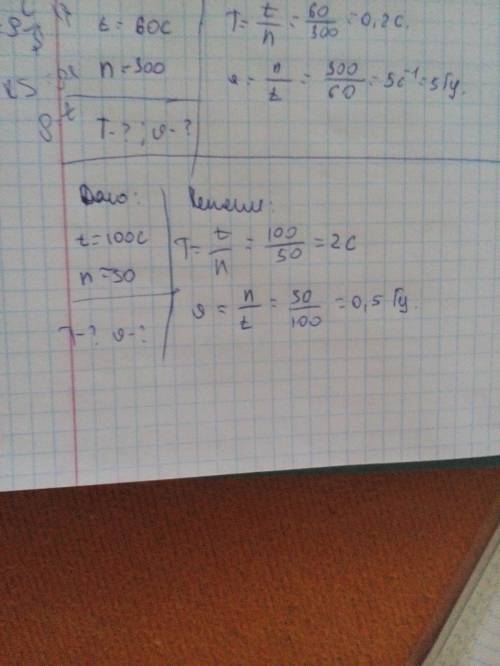 t = 60с
n = 300
T-? ; υ-?
T = t/n = 60/300 = 0,2с.
υ = n/t = 300/60 = 5с⁻¹ = 5Гц.
Дано:
t = 100с
n = 50
T-? υ-?
Решение:
T = t/n = 100/50 = 2с
υ = n/t = 50/100 = 0,5 Гц.